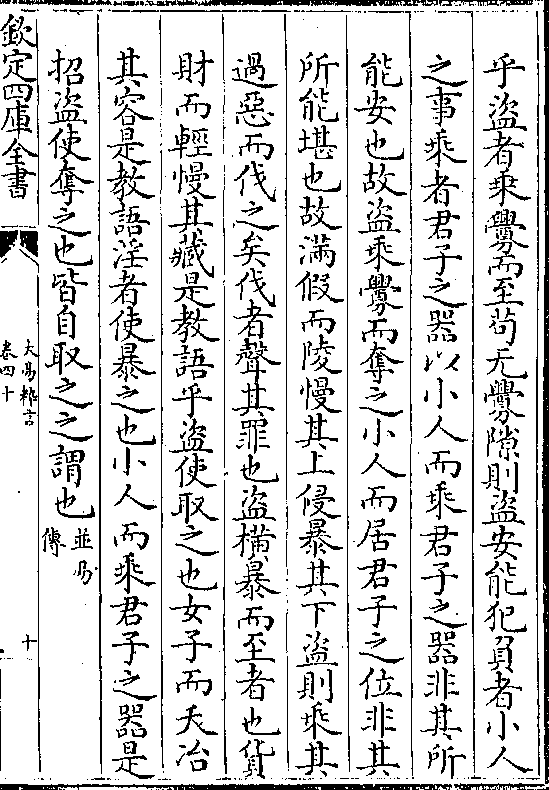 乎盜者乗釁而至苟无釁隙則盜安能犯負者小人
之事乘者君子之器以小人而乘君子之器非其所
能安也故盜乘釁而奪之小人而居君子之位非其
所能堪也故滿假而陵慢其上侵暴其下盜則乘其
過惡而伐之矣伐者聲其罪也盜橫暴而至者也貨
財而輕慢其藏是教語乎盜使取之也女子而夭冶
其容是教語淫者使暴之也小人而乘君子之器是
招盜使奪之也皆自取之之謂也並易傳
欽定四庫全書
大易粹言
卷四十
十